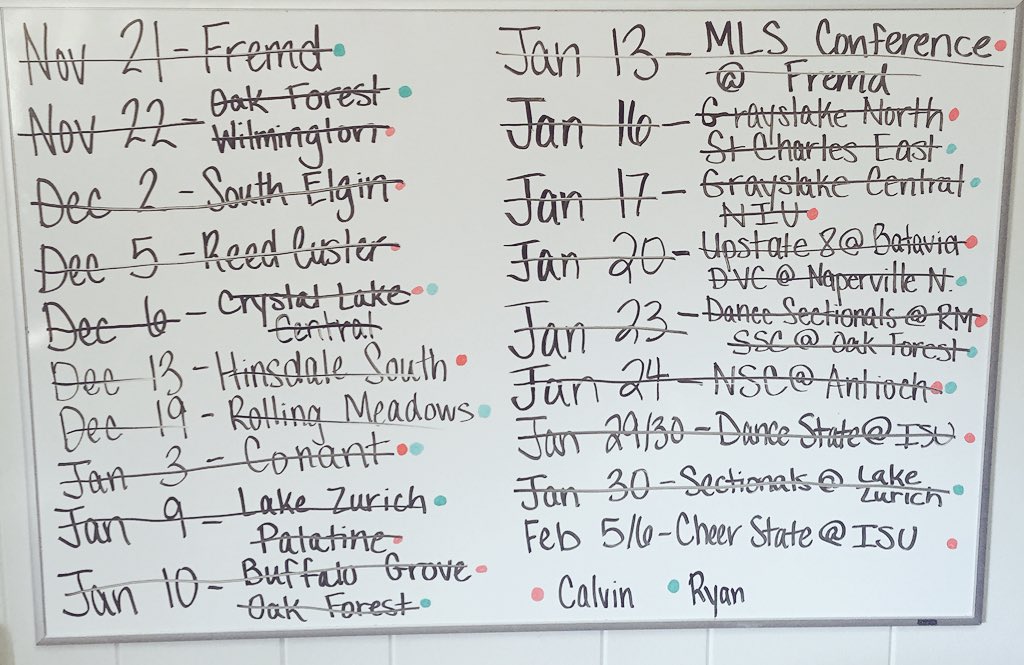 Nov 21 - Fremd
Nov 22 - Oak Forest
Wilmington
Dec 2 - South Elgin
Dec 5 - Reed Custer
Dec 6 - Crystal Lake
Central
Dec 13 - Hinsdale South
Dec 19 - Rolling Meadows
Jan 3 - Conant
Jan 9 - Lake Zurich
Palatine
Jan 10 - Buffalo Grove
Oak Forest
Jan 13 - MLS Conference
@ Fremd
Jan 16 - Grayslake North
St Charles East
Jan 17 - Grayslake Central
NIU
Jan 20 - Upstate 8 @ Batavia
DVC @ Naperville N.
Jan 23 - Dance Sectionals @ RM
SSC @ Oak Forest
Jan 24 - NSC @ Antioch
Jan 29/30 - Dance State @ ISU
Jan 30 - Sectionals @ Lake
Zurich
Feb 5/6 - Cheer State @ ISU
Calvin Ryan